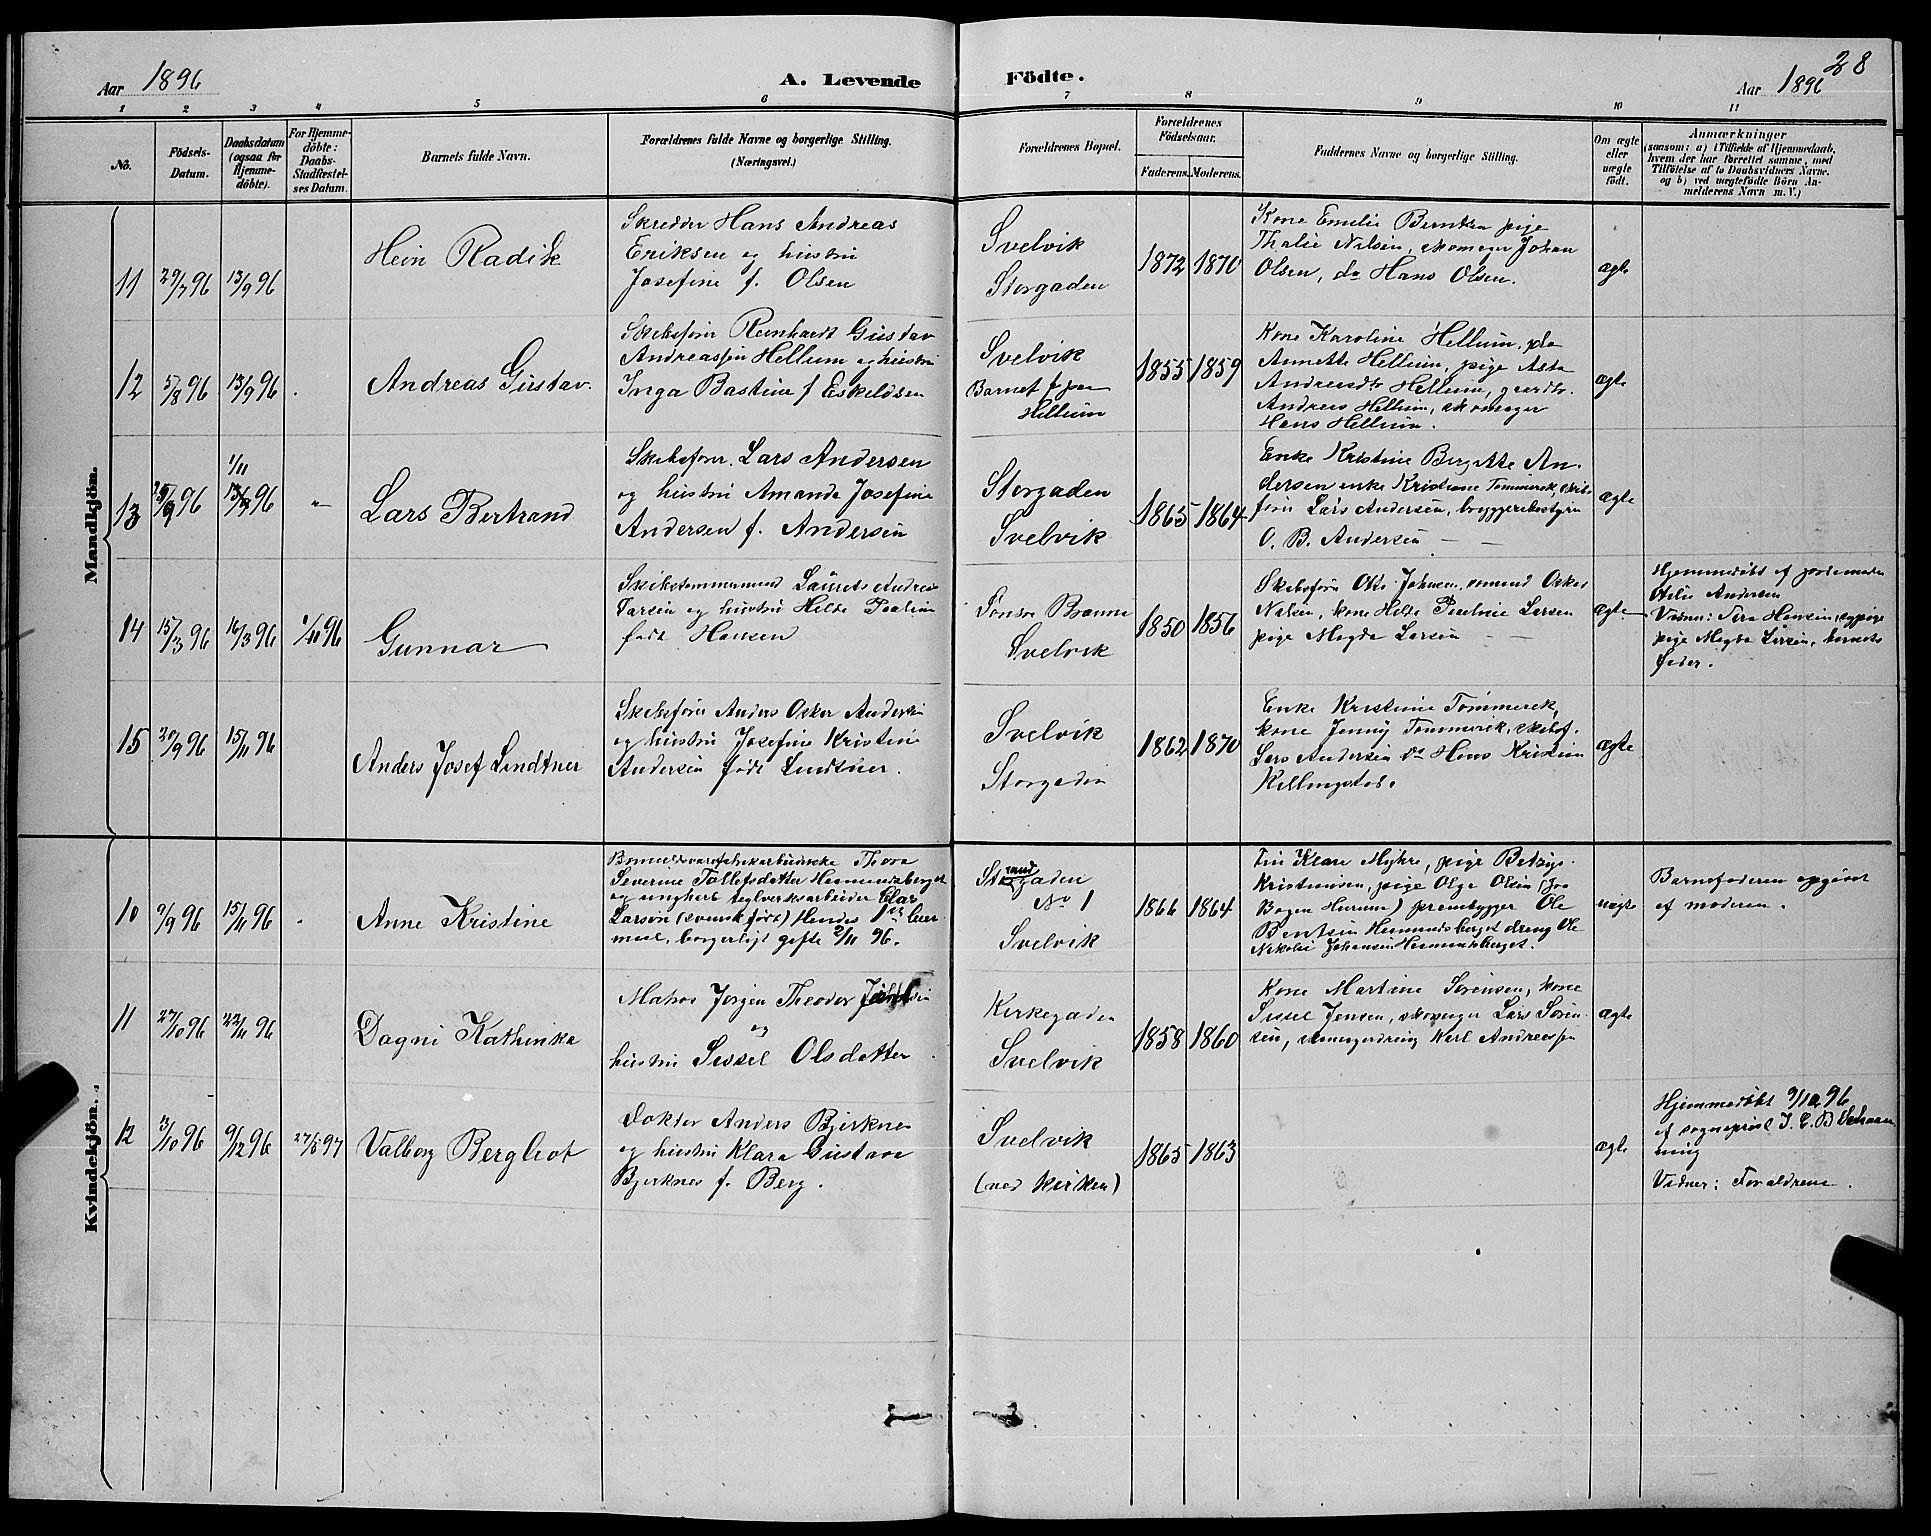 Aar 1896
A. Levende
Födte.
Aar 1896
28
1 2 3 4 5 6 7 8 9 10 11
No.
Födsels-Datum.
Daabsdatum (ogsaa for Hjemme-döbte).
For Hjemme-döbte: Daabs-Stadfæstel-ses Datum.
Barnets fulde Navn.
Forældrenes fulde Navne og borgerlige Stilling.
(Næringsvei.)
Forældrenes Bopæl.
Forældrenes Födselsaar.
Faderens. Moderens.
Faddernes Navne og borgerlige Stilling.
Om ægte eller uægte födt.
Anmærkninger
(saasom: a) i Tilfælde af Hjemmedaab,
hvem der har forrettet samme, med
Tilföielse af to Daabsvidners Navne.
og b) ved uægtefödte Börn An-
melderens Navn m. V.)
Mandkjön.
11 29/7 96 13/9 96
Hein Radik
Skredder Hans Andreas
Eriksen og hustru
Josefine f. Olsen
Svelvik
Storgaden
1872 1870
Kone Emilie Berntsen pige
Thalie Nilsen, skomager Johan
Olsen, do Hans Olsen.
ægte
12 5/8 96 13/9 96
Andreas Gustav.
Skibsfører Reinhardt Gustav
Andreassen Hellum og hustru
Inga Bastine f Eskildsen
Svelvik
Barnet f paa
Hellum
1855 1859
Kone Karoline Hellum,
Annette Hellum, pige Asta
Andreasdtr Hellum, gaardbr.
Andreas Hellum, skomager
Hans Hellum.
ægte
13 96 1/11 13/9 96 "
Lars Bertrand
Skibsfører. Lars Andersen
og hustru Amanda Josefine
Andersen f. Andersen
Storgaden
Svelvik
1865 1864
Enke Kristine Bergitte An-
dersen enke Kristiane Tømmerek, skibs
fører Lars Andersen, bryggeribestyrer
O. B. Andersen
ægte
14 15/3 96 16/3 96 1/11 96
Gunnar
Skibstømmermand Laurets Andreas
Larsen og hustru Helse Pauline
født Hansen
Søndre Branne
Svelvik
1850 1856
Skibsfører Otto Johnsen, sømand Oskar
Nilsen, kone Helse Pauline Larsen
pige Magda Larsen
ægte
Hjemmedøbt af jordemoder
Andersen
Vidner: Hansen, sypige
pige Magda Larsen, barnets
fader.
15 30/9 96 15/11 96
Anders Josef Lindtner
Skibsfører Anders Oskar Andersen
og hustru Josefine Kristine
Andersen født Lindtner.
Svelvik
Storgaden
1862 1870
Enke Kristine Tømmerek,
kone Jenny Tømmerek, skibsf.
Lars Andersen do Hans Kristian
Killingstad.
ægte
Kvindekjön.
10 9/9 96 15/11 96
Anne Kristine
Bomuldsvarefabrikarbeiderske Thora
Severine Tollefsdatter Hermundsberget
og ungkarl teglverksarbeider Klas
Larson (svensk født) Hendes 1ste leier
maal, borgerligt gifte 2/11 96.
Strandgaden
No 1
Svelvik
1866 1864
Fru Klara Myhre, pige Betzy
Kristensen, pige Olga Olsen (fra
Bogen Hurum) prambygger Ole
Bentsen Hermundsberget dreng Ole
Nikolai Johansen Hermundsberget.
uægte
Barnefaderen opgivet
af moderen.
11 27/10 96 22/11 96
Dagni Kathinka
Matros Jørgen Theodor
og
hustru Sissel Olsdatter
Kirkegaden
Svelvik
1858 1860
Kone Martine Sørensen, kone
Sissel Jensen, skomager Lars Søren-
sen, skomagerdreng Karl Andreassen
ægte
12 3/10 96 9/12 96 27/5 97
Valborg Bergliot
Doktor Anders Bjerknes
og hustru Klara Gustava
Bjerknes f. Berg.
Svelvik
(ved kirken)
1865 1863
ægte
Hjemmedøbt 9/12 96
af sogneprest J. E. B. Schaan-
ning
Vidner: Forældrene.